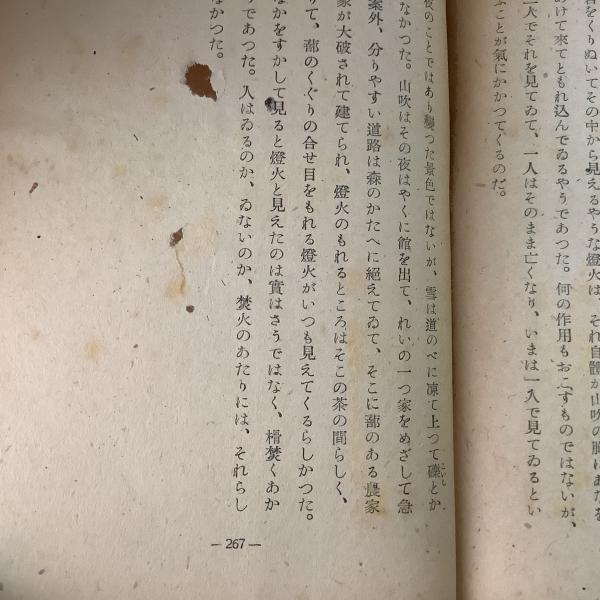 君をくりぬいてその中から見えるやうな燈火は、それ自體が山吹の胸にあたを
あけて來てともれ込んでゐるやうであつた。何の作用もおこすものではないが、
二人でそれを見てゐて、一人はそのまま亡くなり、いまは一人で見てゐるとい
ふことが氣にかかつてくるのだ。
夜のことではあり變つた景色ではないが、雪は道のべに凍て上つて礫とか
なかつた。山吹はその夜はやくに館を出て、れいの一つ家をめざして急
案外、分りやすい道路は森のかたへに絕えてゐて、そこに蔀のある農家
家が大破されて建てられ、燈火のもれるところはそこの茶の間らしく、
りて、蔀のくぐりの合せ目をもれる燈火がいつも見えてくるらしかつた。
なかをすかして見ると燈火と見えたのは實はさうではなく、榾焚くあか
りであつた。人はゐるのか、ゐないのか、焚火のあたりには、それらし
なかつた。
—267—